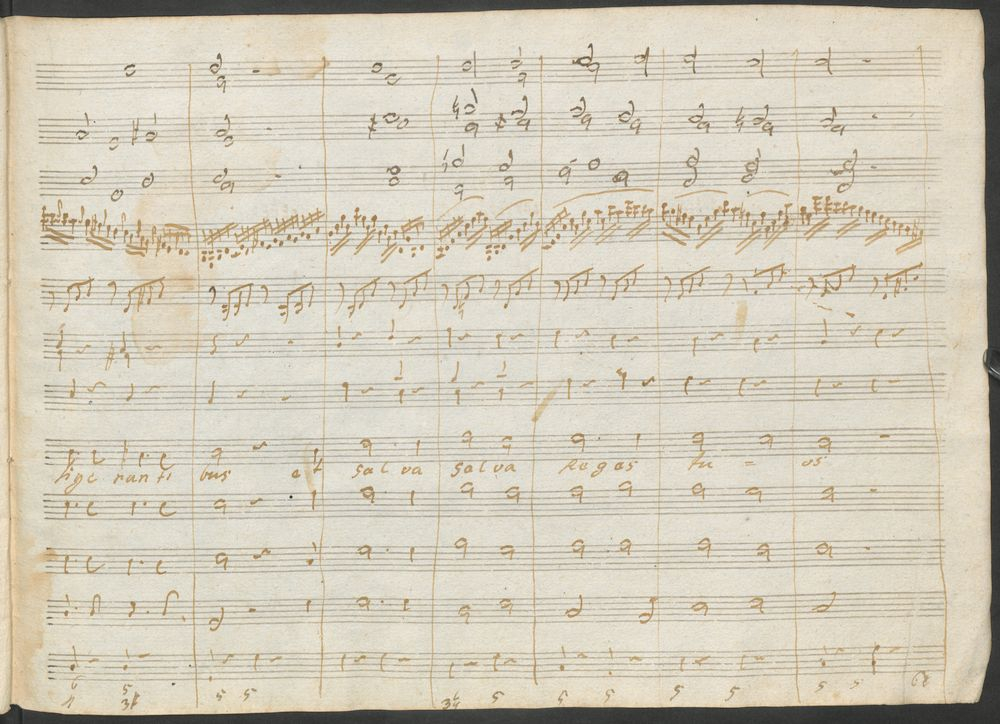 lige ranti bus et salva salva Reges tu = os
6 5 5 5 3♮ 5 5 5 5 5 5 5
4 3♮